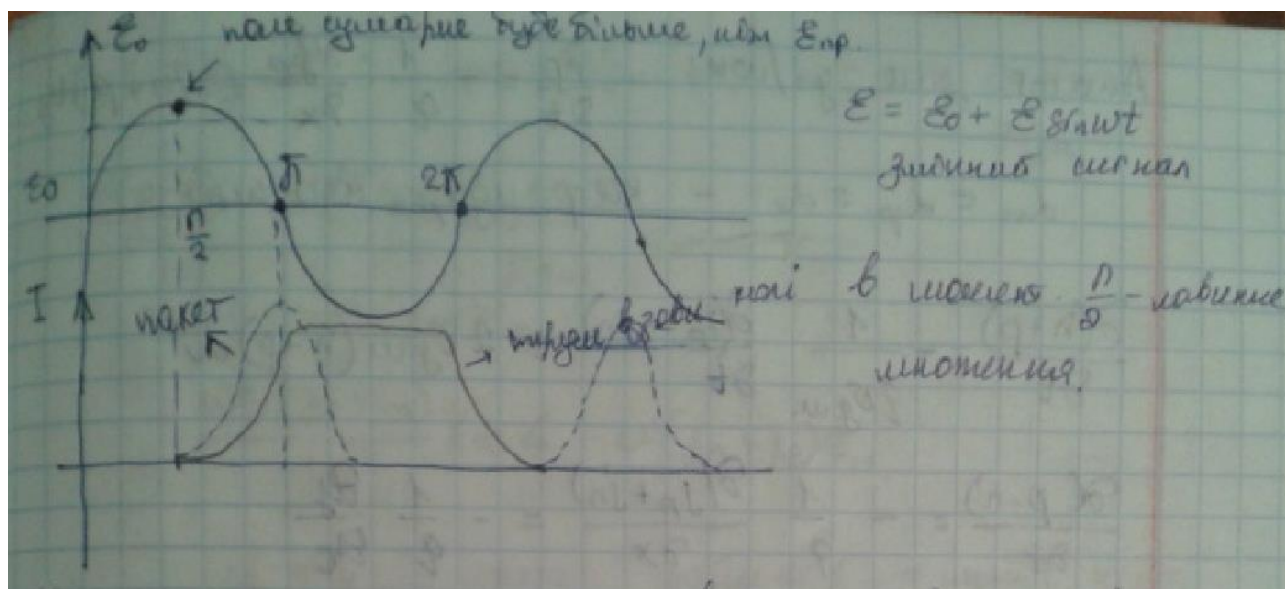 ε₀ поле сумарне буде більше, ніж εпр.
ε = ε₀ + ε sin ωt
змінний сигнал
ε₀
π
2π
π/2
I
пакет
струм в
колі в момент π/2 - лавинне
множення.